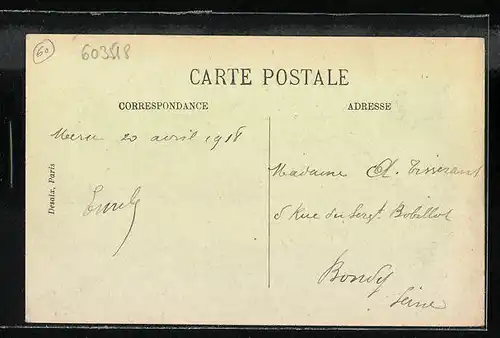 60
603518
CARTE POSTALE
CORRESPONDANCE
ADRESSE
Meru 20 avril 1918
Madame Cl. Tisserant
5 Rue du Sergt Bobillot
Bondy
Seine
Desaix, Paris